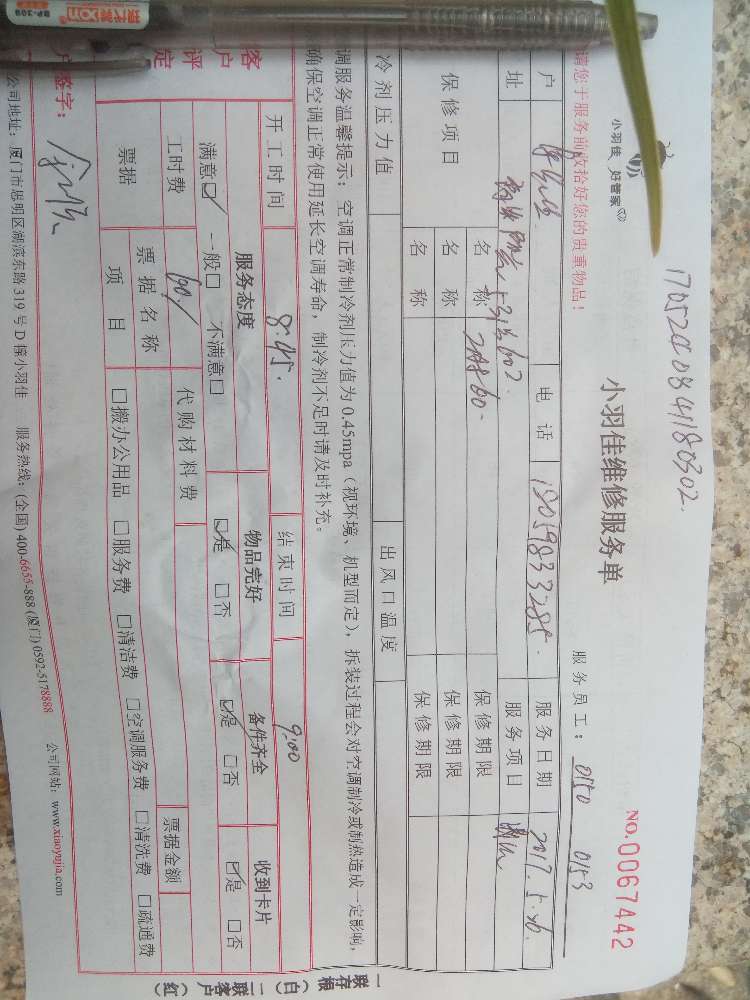 1705240841180302
小羽佳 好管家
小羽佳维修服务单
NO.0067442
服务员工：0150 0153
请您于服务前收拾好您的贵重物品！
户 电话 18059833285 服务日期 2017.5.26
址 服务项目
保修项目 名称 保修期限
名称 保修期限
名称 保修期限
冷剂压力值 出风口温度
调服务温馨提示：空调正常制冷剂压力值为0.45mpa（视环境、机型而定），拆装过程会对空调制冷或制热造成一定影响，
确保空调正常使用延长空调寿命，制冷剂不足时请及时补充。
开工时间 8:45. 结束时间 9:00
客户评定 服务态度 物品完好 备件齐全 收到卡片
满意☑ 一般□ 不满意□ ☑是 □否 ☑是 □否 ☑是 □否
工时费 代购材料费
票据 票据名称 票据金额
项目 □搬办公用品 □服务费 □清洁费 □空调服务费 □清洗费 □疏通费
户签字：
公司地址：厦门市思明区湖滨东路319号D幢小羽佳 服务热线：(全国) 400-6655-888 (厦门) 0592-5178888 公司网站：www.xiaoyujia.com
一联存根（白）二联客户（红）